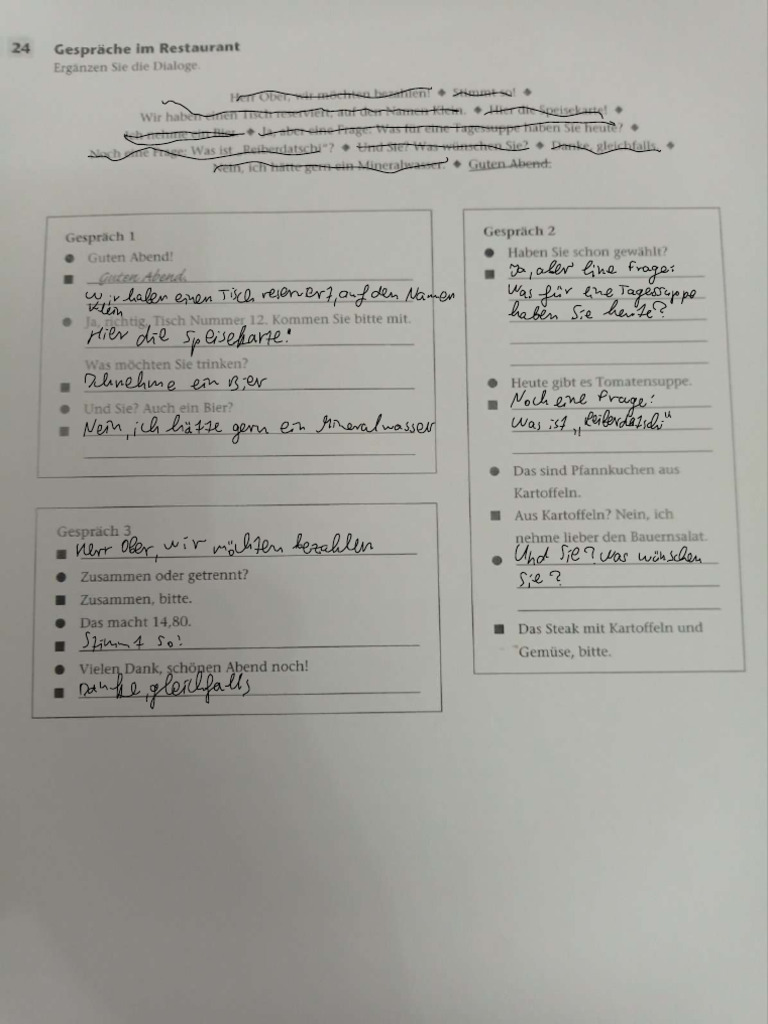 24 Gespräche im Restaurant
Ergänzen Sie die Dialoge.
Herr Ober, wir möchten bezahlen! ◆ Stimmt so! ◆
Wir haben einen Tisch reserviert, auf den Namen Klein. ◆ Hier die Speisekarte! ◆
Ich nehme ein Bier ◆ Ja, aber eine Frage: Was für eine Tagessuppe haben Sie heute? ◆
Noch eine Frage: Was ist „Reiberdatschi“? ◆ Und Sie? Was wünschen Sie? ◆ Danke, gleichfalls. ◆
Nein, ich hätte gern ein Mineralwasser. ◆ Guten Abend.
Gespräch 1
● Guten Abend!
■ Guten Abend.
Wir haben einen Tisch reserviert, auf den Namen
Klein
● Ja, richtig, Tisch Nummer 12. Kommen Sie bitte mit.
Hier die Speisekarte!
Was möchten Sie trinken?
■ Ich nehme ein Bier
● Und Sie? Auch ein Bier?
■ Nein, ich hätte gern ein Mineralwasser
Gespräch 2
● Haben Sie schon gewählt?
■ Ja, aber eine Frage:
Was für eine Tagessuppe
haben Sie heute?
● Heute gibt es Tomatensuppe.
■ Noch eine Frage:
Was ist „Reiberdatschi“
● Das sind Pfannkuchen aus
Kartoffeln.
■ Aus Kartoffeln? Nein, ich
nehme lieber den Bauernsalat.
● Und Sie? Was wünschen
Sie?
■ Das Steak mit Kartoffeln und
Gemüse, bitte.
Gespräch 3
■ Herr Ober, wir möchten bezahlen
● Zusammen oder getrennt?
■ Zusammen, bitte.
● Das macht 14,80.
■ Stimmt so!
● Vielen Dank, schönen Abend noch!
■ Danke, gleichfalls